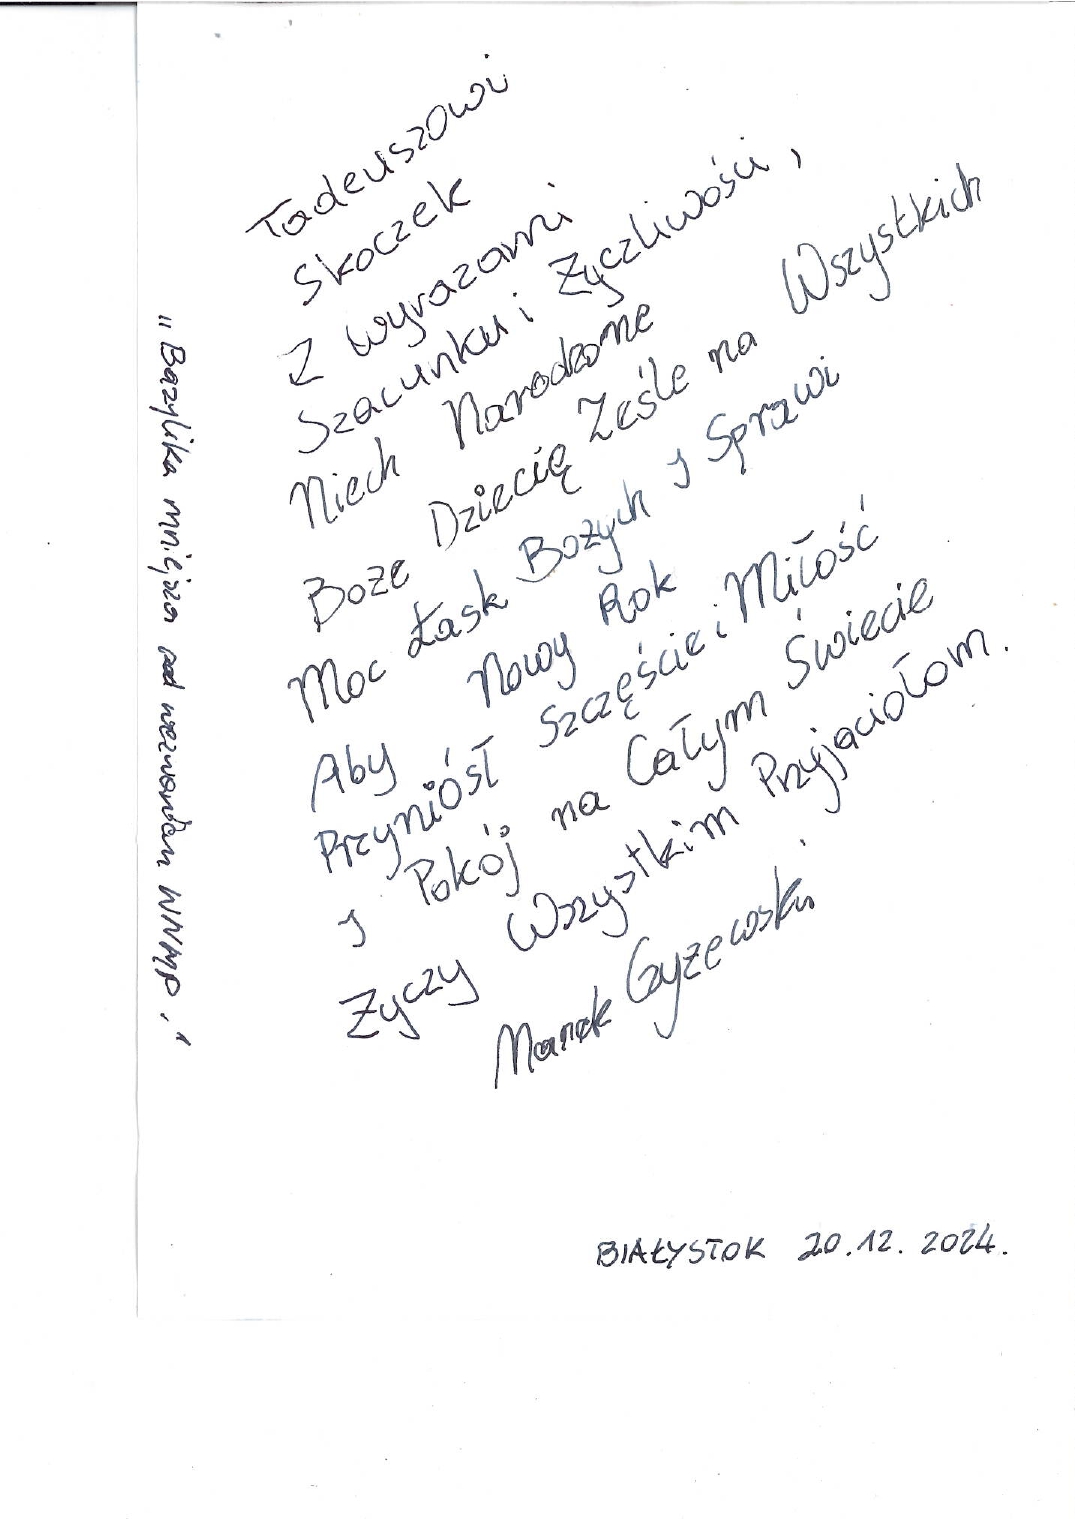 Tadeuszowi
Skoczek
Z wyrazami
Szacunku i Życzliwości,
Niech Narodzone
Boże Dziecię Ześle na Wszystkich
Moc Łask Bożych I Sprawi
Aby Nowy Rok
Przyniósł Szczęście i Miłość
I Pokój na Całym Świecie
Życzy Wszystkim Przyjaciołom.
Marek Gyżewski
"Bazylika mniejsza pod wezwaniem WNMP."
BIAŁYSTOK 20.12.2024.